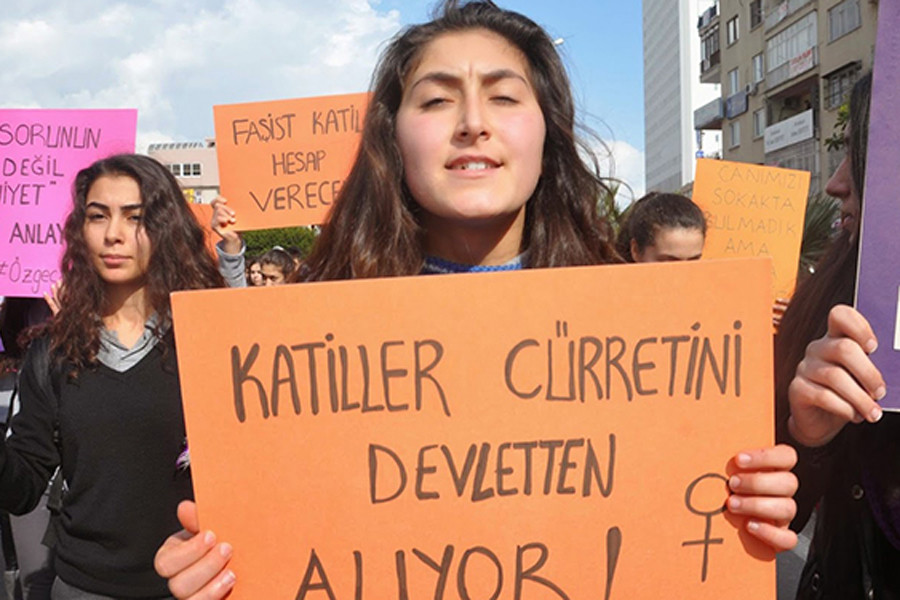 SORUNUN
DEĞİL
NİYET"
ANLAY
#Özgec
FAŞİST KATİL
HESAP
VERECE
KATİLLER CÜRRETİNİ
DEVLETTEN
ALIYOR!
CANIMIZI
SOKAKTA
BULMADIK
AMA